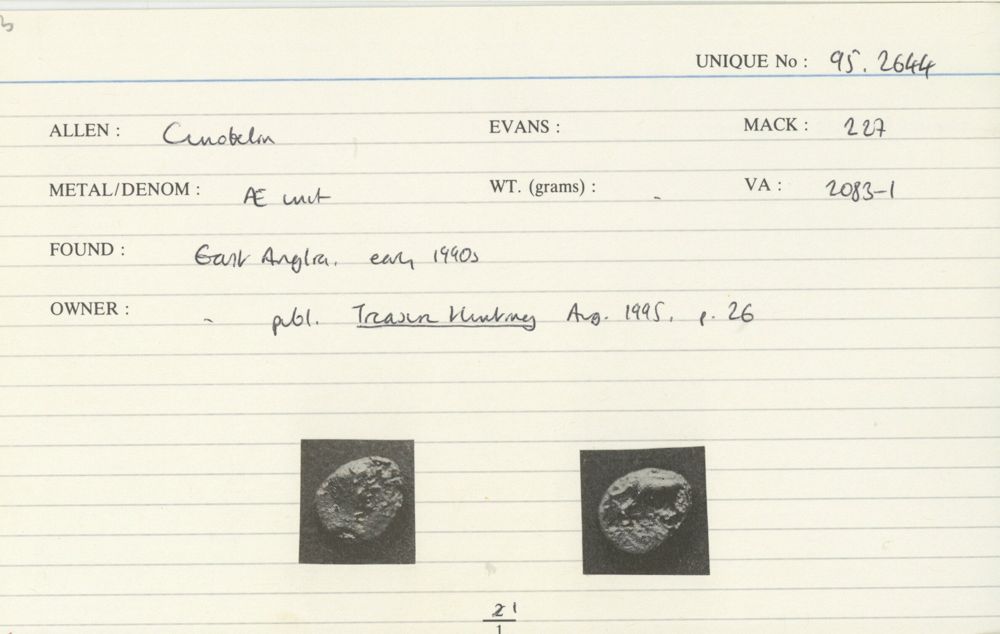 UNIQUE No : 95.2644
ALLEN : Cunobelin EVANS : MACK : 227
METAL/DENOM : Æ unit WT. (grams) : - VA : 2083-1
FOUND : East Anglia. early 1990s
OWNER : - publ. Treasure Hunting Aug. 1995, p. 26
1
1